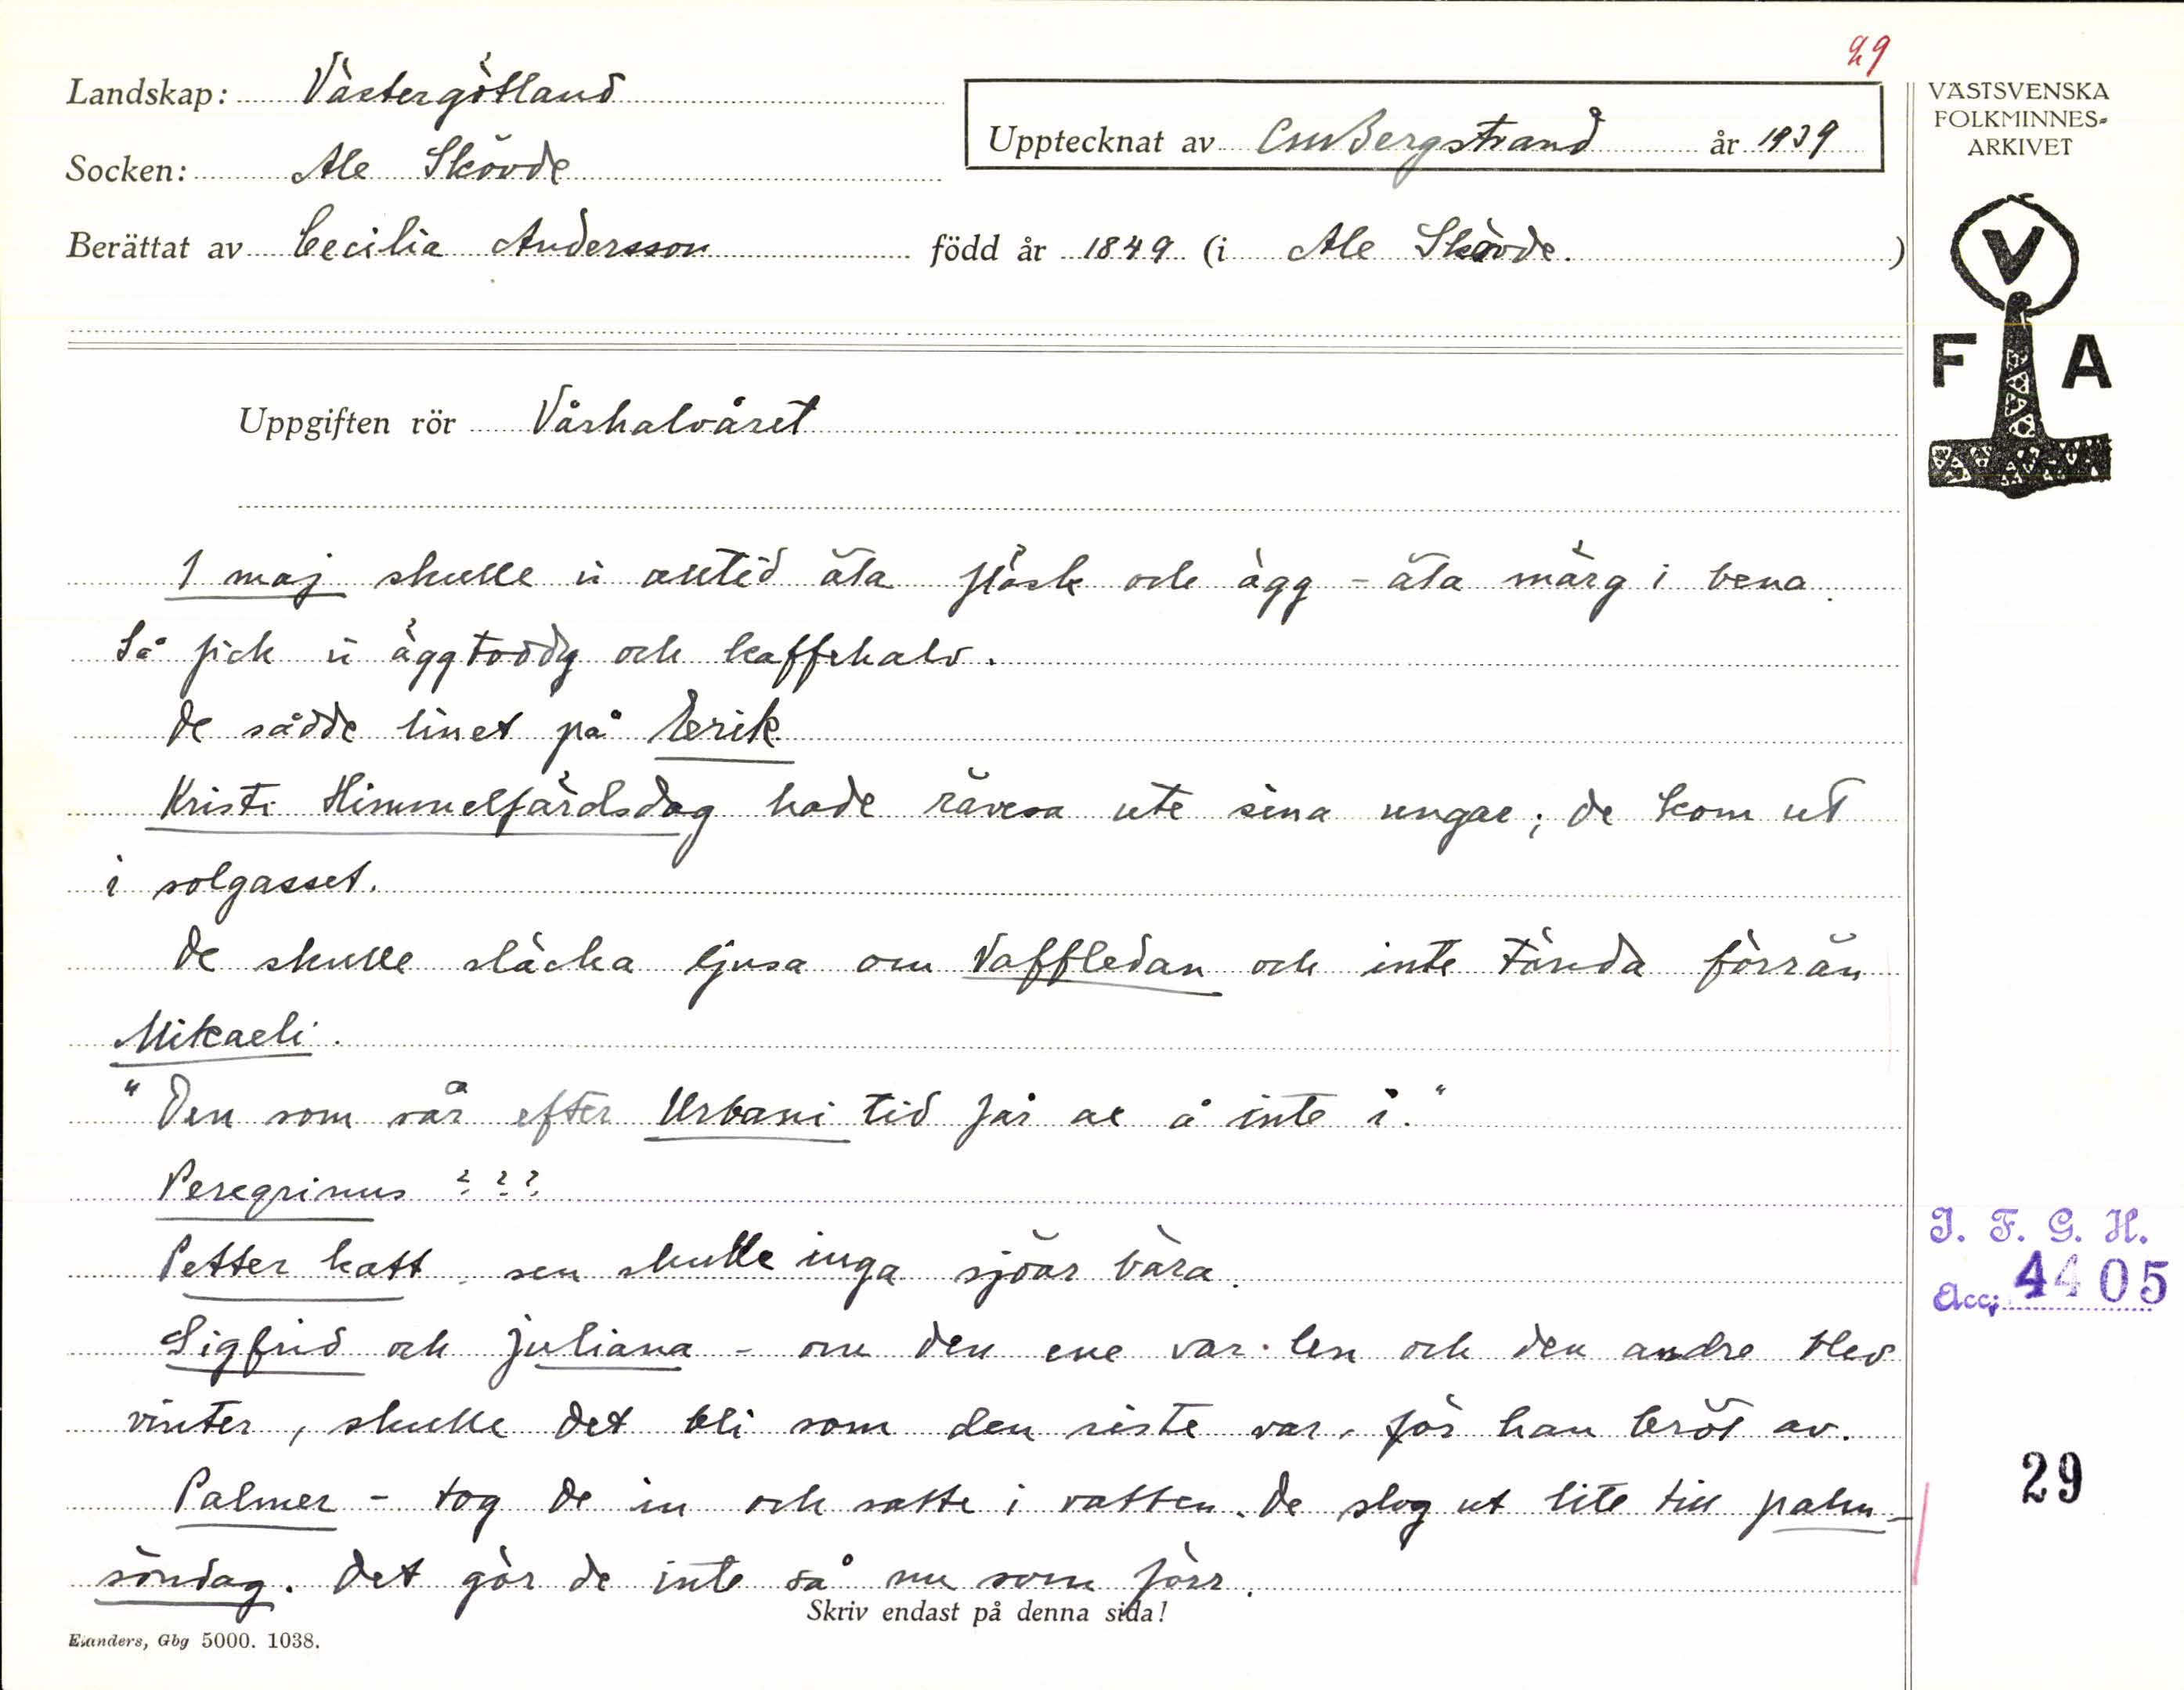 29
Landskap: Västergötland
Upptecknat av CMBergstrand år 1939
Socken: Ale Skövde
Berättat av Cecilia Andersson född år 1849 (i Ale Skövde.)
VÄSTSVENSKA
FOLKMINNES-
ARKIVET
V
F A
Uppgiften rör Vårhalvåret
1 maj skulle vi alltid äta fläsk och ägg - äta märg i bena.
Så fick vi äggtoddy och kaffehalv.
De sådde linet på Erik
Kristi Himmelfärdsdag hade räven ute sina ungar; de kom ut
i solgasset.
De skulle släcka ljusa om Vaffledan och inte tända förrän
Mikaeli.
"Den som sår efter Urbani tid får ax å inte i."
Peregrinus ???
Petter katt, sen skulle inga sjöar bära.
Sigfrid och Juliana - om den ene var len och den andre blev
vinter, skulle det bli som den siste var, för han bröt av.
Palmer - tog de in och satte i vatten. De slog ut lite till palm-
söndag. Det gör de inte så nu som förr.
Skriv endast på denna sida!
Elanders, Gbg 5000. 1038.
I. F. G. H.
Acc: 4405
29